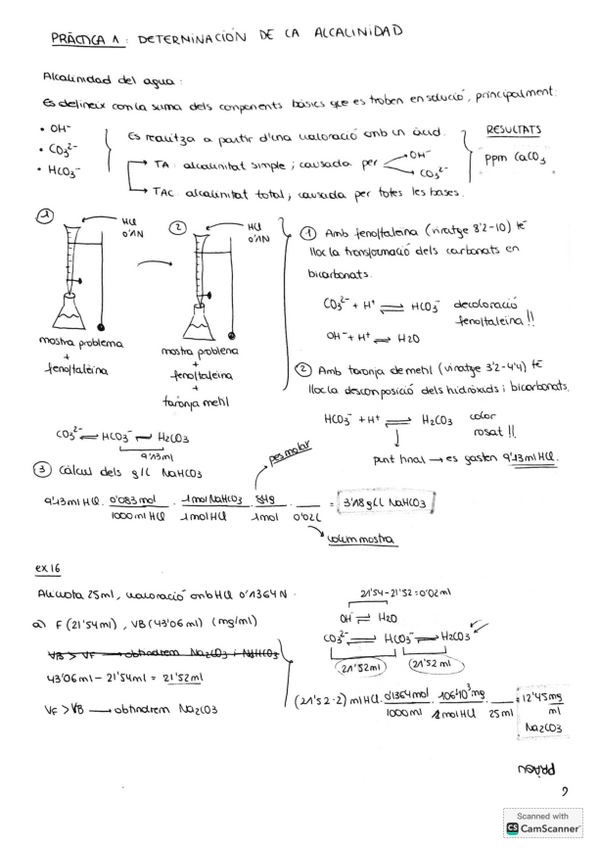 PRÀCTICA 1: DETERMINACIÓN DE LA ALCALINIDAD
Alcalinidad del agua:
Es defineix com la suma dels components bàsics que es troben en solució, principalment:
• OH⁻
• CO₃²⁻
• HCO₃⁻
Es realitza a partir d'una valoració amb un àcid.
TA: alcalinitat simple; causada per OH⁻ CO₃²⁻
TAC: alcalinitat total; causada per totes les bases.
RESULTATS
ppm CaCO₃
1
HCl
0'1N
mostra problema
+
fenolftaleina
2
HCl
0'1N
mostra problema
+
fenolftaleina
+
taronja metil
1 Amb fenolftaleina (viratge 8'2-10) té
lloc la transformació dels carbonats en
bicarbonats.
CO₃²⁻ + H⁺ ⇌ HCO₃⁻ decoloració
fenolftaleina!!
OH⁻ + H⁺ ⇌ H₂O
2 Amb taronja de metil (viratge 3'2-4'4) té
lloc la descomposició dels hidròxids i bicarbonats.
HCO₃⁻ + H⁺ ⇌ H₂CO₃ color
rosat!!
punt final → es gasten 9'13ml HCl.
CO₃²⁻ ⇌ HCO₃⁻ ⇌ H₂CO₃
9'13ml
3 Càlcul dels g/L NaHCO₃
pes molar
9'13ml HCl · 0'083mol/1000ml HCl · 1mol NaHCO₃/1mol HCl · 84g/1mol · /0'02L = 3'18g/L NaHCO₃
volum mostra
ex 16
Alicuota 25ml, valoració amb HCl 0'1364N.
a) F (21'54ml), VB (43'06ml) (mg/ml)
VB > VF → obtindrem Na₂CO₃ i NaHCO₃
43'06ml - 21'54ml = 21'52ml
VF > VB → obtindrem Na₂CO₃
21'54-21'52 = 0'02ml
OH⁻ ⇌ H₂O
CO₃²⁻ ⇌ HCO₃⁻ ⇌ H₂CO₃
21'52ml 21'52ml
(21'52·2) ml HCl · 0'1364mol/1000ml · 106·10³mg/2mol HCl · /25ml = 12'45mg/ml
Na₂CO₃
Scanned with
CS CamScanner